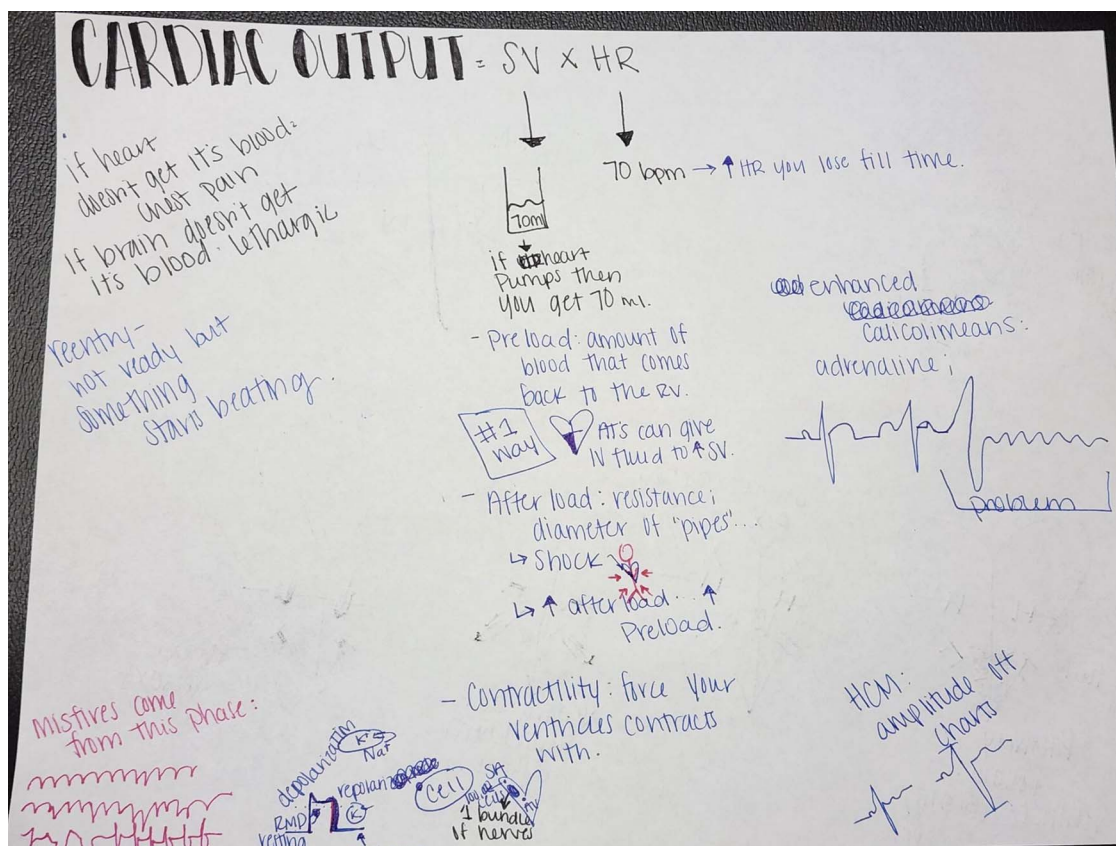 CARDIAC OUTPUT = SV X HR
if heart
doesn't get it's blood:
chest pain
If brain doesn't get
it's blood: lethargic
70 bpm → ↑ HR you lose fill time.
70ml
if heart
Pumps then
you get 70 ml.
reentry-
not ready but
something
starts beating.
- Preload: amount of
blood that comes
back to the RV.
#1
way
AT's can give
IV fluid to ↑ SV.
- After load: resistance;
diameter of "pipes"...
↳ Shock
↳ ↑ afterload... ↑
Preload.
- Contractility: force your
ventricles contracts
with.
enhanced
calicolimeans:
adrenaline;
problem
HCM:
amplitude off
charts
Misfires come
from this phase:
depolarization
K+
Na+
repolar
RMP
resting
K
Cell
SA
1 bundle
if nerves